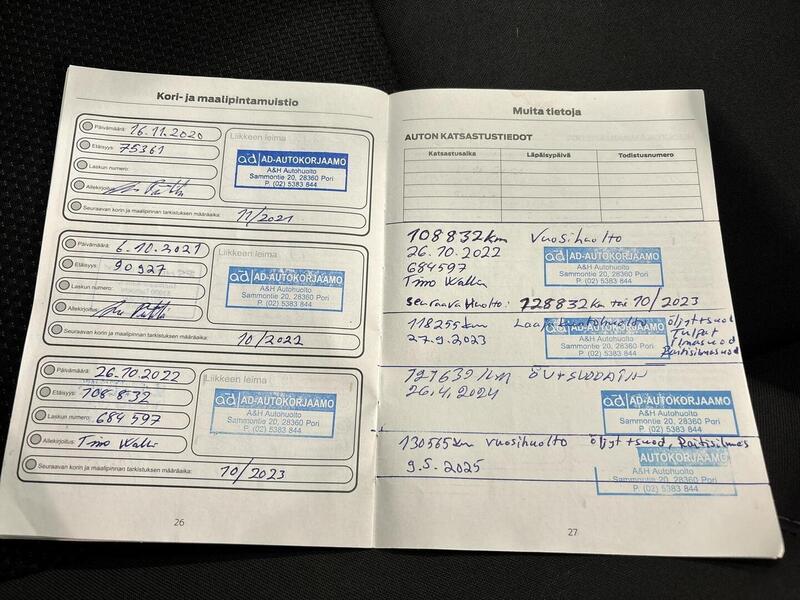 Kori- ja maalipintamuistio
Päivämäärä: 16.11.2020
Liikkeen leima
Etäisyys: 75361
Laskun numero:
Allekirjoitus:
ad AD-AUTOKORJAAMO
A&H Autohuolto
Sammontie 20, 28360 Pori
P. (02) 5383 844
Seuraavan korin ja maalipinnan tarkistuksen määräaika: 11/2021
Päivämäärä: 6.10.2021
Liikkeen leima
Etäisyys: 90927
Laskun numero:
Allekirjoitus:
ad AD-AUTOKORJAAMO
A&H Autohuolto
Sammontie 20, 28360 Pori
P. (02) 5383 844
Seuraavan korin ja maalipinnan tarkistuksen määräaika: 10/2022
Päivämäärä: 26.10.2022
Liikkeen leima
Etäisyys: 108832
Laskun numero: 684597
Allekirjoitus: Timo
ad AD-AUTOKORJAAMO
A&H Autohuolto
Sammontie 20, 28360 Pori
P. (02) 5383 844
Seuraavan korin ja maalipinnan tarkistuksen määräaika: 10/2023
26
Muita tietoja
AUTON KATSASTUSTIEDOT
Katsastusaika Läpäisypäivä Todistusnumero
108832km Vuosihuolto
26.10.2022
684597
Timo
ad AD-AUTOKORJAAMO
A&H Autohuolto
Sammontie 20, 28360 Pori
P. (02) 5383 844
Seuraava Huolto: 128832 km tai 10/2023
118255km öljyt+suod
27.9.2023 Tulpat
Ilmasuod
Raitisilmasuod
AD-AUTOKORJAAMO
A&H Autohuolto
Sammontie 20, 28360 Pori
P. (02) 5383 844
127632 km
26.4.2024
ad AD-AUTOKORJAAMO
A&H Autohuolto
Sammontie 20, 28360 Pori
P. (02) 5383 844
130565km vuosihuolto öljyt+suod, Raitisilmas
9.5.2025
AUTOKORJAAMO
A&H Autohuolto
Sammontie 20, 28360 Pori
P. (02) 5383 844
27